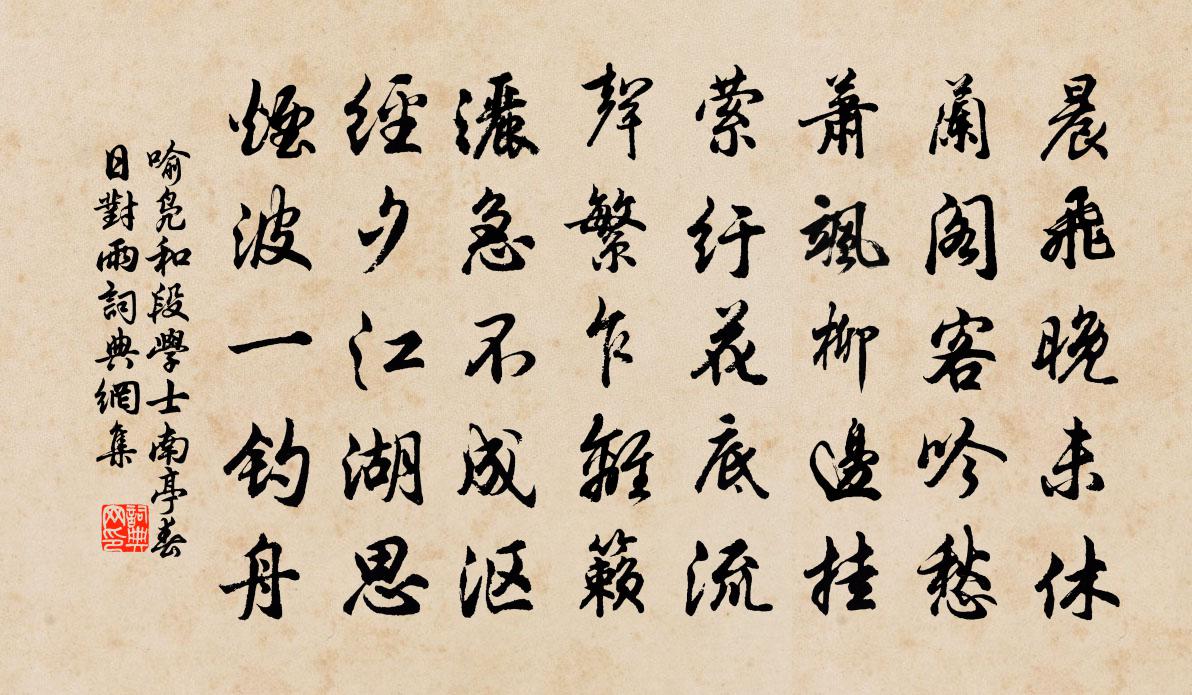 晨飛晚未休
蘭閣客吟愁
蕭颯柳邊挂
縈紆花底流
聲繁乍離籟
灑急不成漚
經夕江湖思
煙波一釣舟
喻鳧和段學士南亭春
日對雨詞典網集
詞典
网印